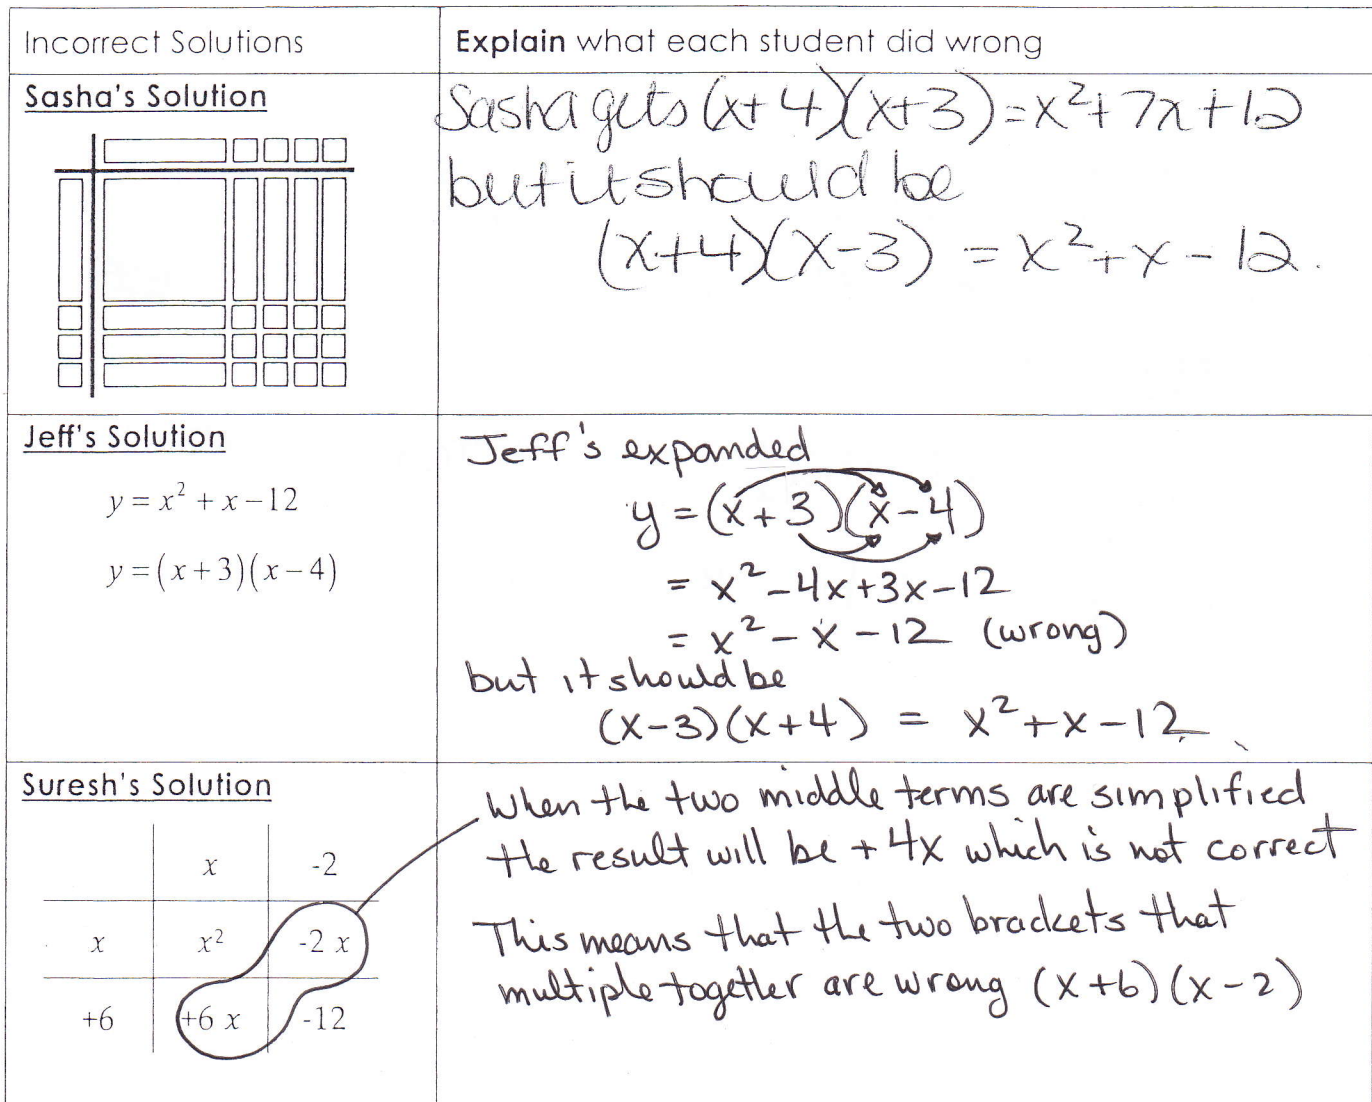 Incorrect Solutions
Explain what each student did wrong
Sasha's Solution
Sasha gets (x+4)(x+3)=x²+7x+12
but it should be
(x+4)(x-3) = x²+x-12.
Jeff's Solution
y = x² + x - 12
y = (x+3)(x-4)
Jeff's expanded
y = (x+3)(x-4)
= x²-4x+3x-12
= x²-x-12 (wrong)
but it should be
(x-3)(x+4) = x²+x-12
Suresh's Solution
x -2
x x² -2 x
+6 +6 x -12
When the two middle terms are simplified
the result will be +4x which is not correct
This means that the two brackets that
multiple together are wrong (x+6)(x-2)